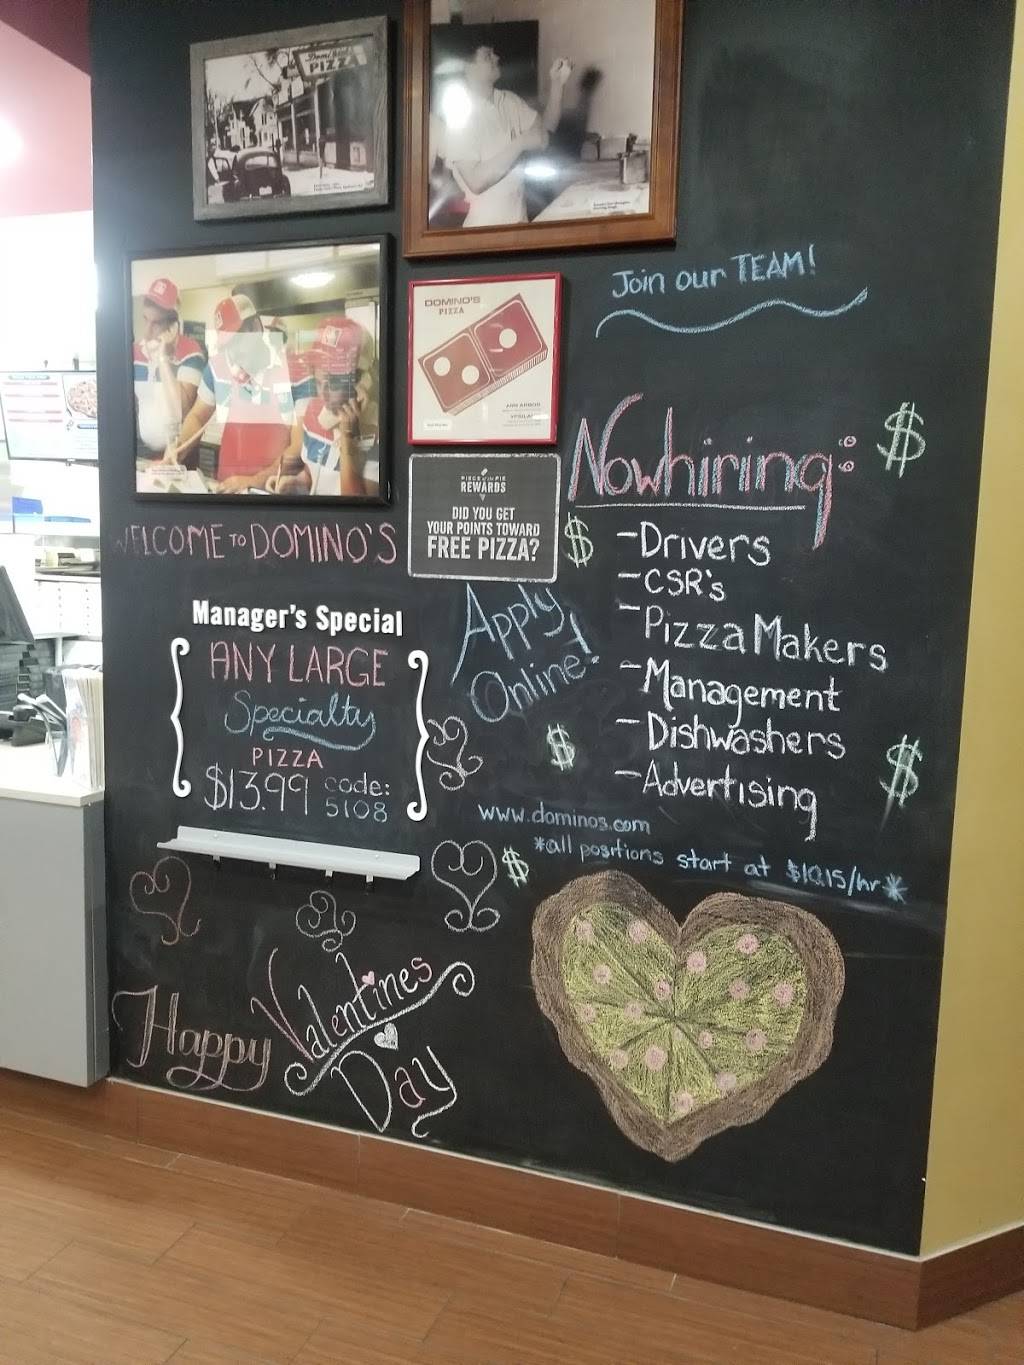 PIZZA
DOMINO'S
PIZZA
ANN ARBOR
PIECE of the PIE
REWARDS
DID YOU GET
YOUR POINTS TOWARD
FREE PIZZA?
WELCOME TO DOMINO'S
Manager's Special
ANY LARGE
Specialty
PIZZA
$13.99 code:
5108
Join our TEAM!
Now hiring:
$
$
-Drivers
-CSR's
-Pizza Makers
-Management
-Dishwashers
-Advertising
$
$
Apply
Online!
www.dominos.com
*all positions start at $10.15/hr*
$
Happy Valentines
Day